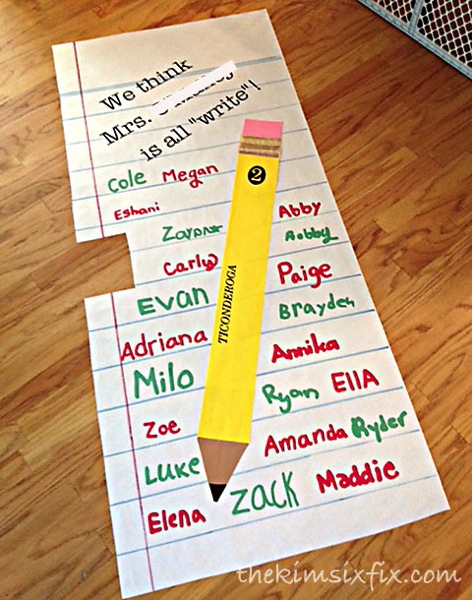 We think
Mrs.
is all "write"!
Cole Megan
Eshani
Abby
Carly
Paige
Evan
Brayden
Adriana
Annika
Milo
Ryan EllA
Zoe
Amanda Ryder
Luke
Zack Maddie
Elena
2
TICONDEROGA
thekimsixfix.com